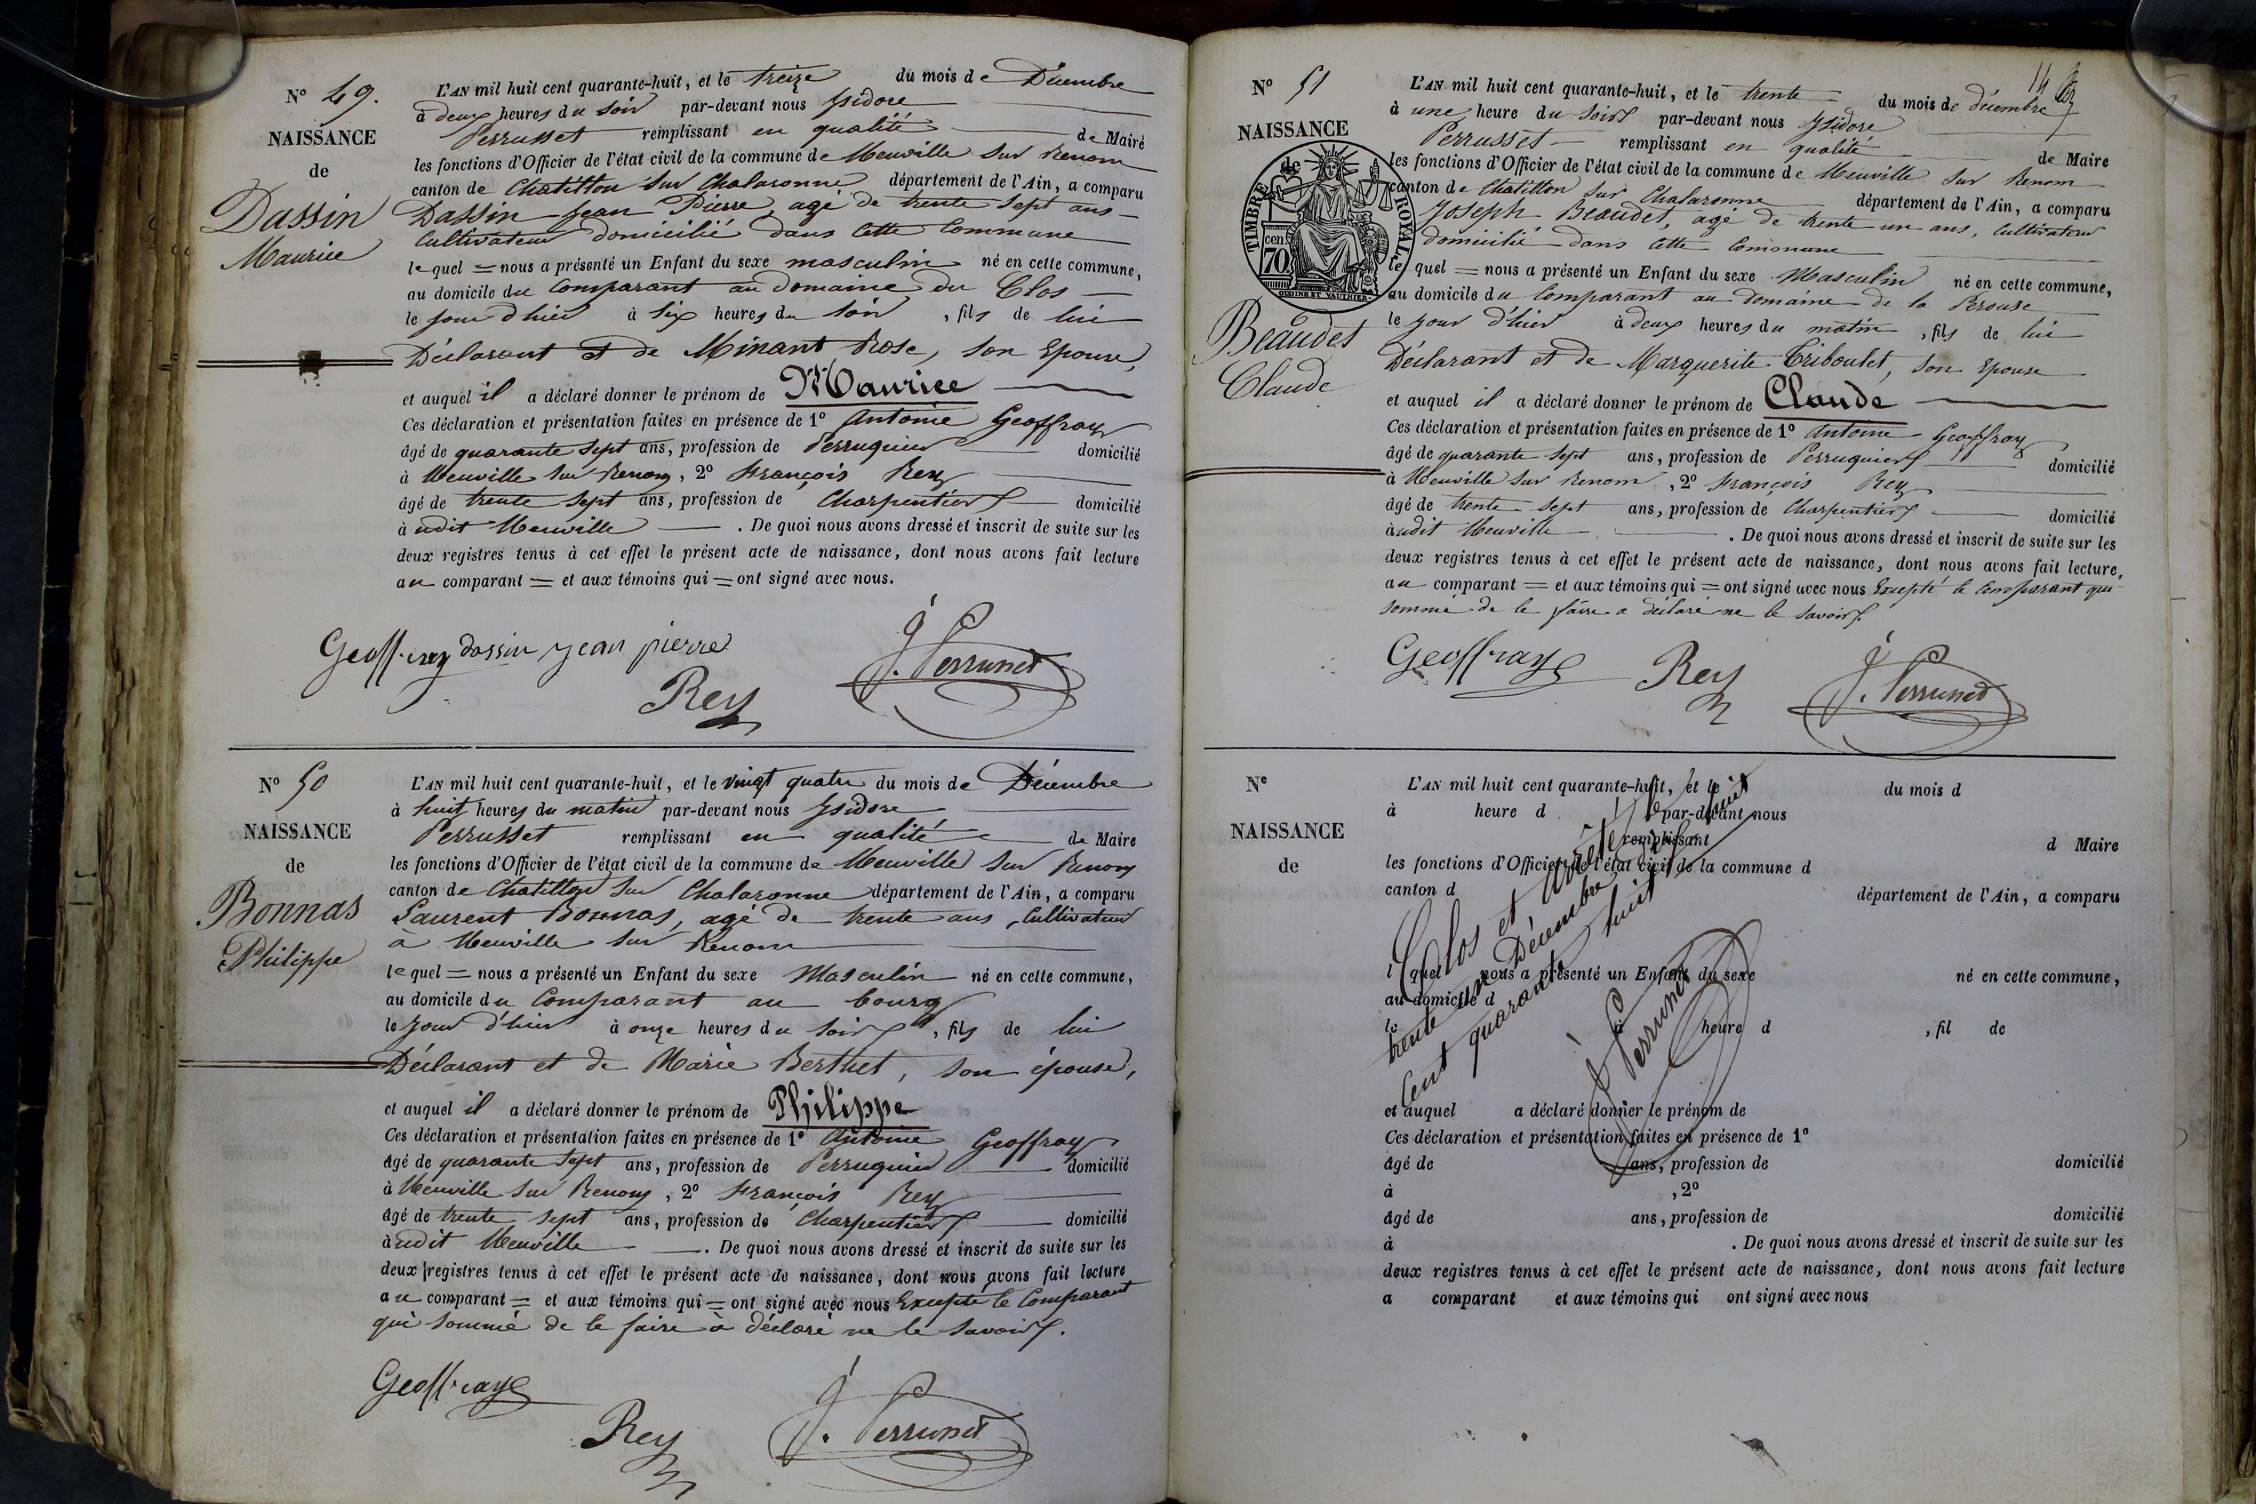 N° 49.
NAISSANCE
de
Dassin
Maurice
L'AN mil huit cent quarante-huit, et le treize du mois de Décembre
à deux heures du soir par-devant nous Ysidore
Perrusset remplissant en qualité de Maire
les fonctions d'Officier de l'état civil de la commune de Neuville sur Renom
canton de Chatillon sur Chalaronne département de l'Ain, a comparu
Dassin Jean Pierre, agé de trente sept ans
Cultivateur domicilié dans cette Commune
lequel = nous a présenté un Enfant du sexe masculin né en cette commune,
au domicile du Comparant au domaine du Clos
le jour d'hier à six heures du soir, fils de lui
Déclarant et de Minant Rose, son Epouse,
et auquel il a déclaré donner le prénom de Maurice
Ces déclaration et présentation faites en présence de 1° Antoine Geoffray
âgé de quarante sept ans, profession de Perruquier domicilié
à Neuville sur Renom, 2° François Rey
âgé de trente sept ans, profession de Charpentier domicilié
à udit Neuville. De quoi nous avons dressé et inscrit de suite sur les
deux registres tenus à cet effet le présent acte de naissance, dont nous avons fait lecture
au comparant = et aux témoins qui = ont signé avec nous.
Geoffray dassin jean pierre
Rey
J. Perrusset
N° 50
NAISSANCE
de
Bonnas
Philippe
L'AN mil huit cent quarante-huit, et le vingt quatre du mois de Décembre
à huit heures du matin par-devant nous Ysidore
Perrusset remplissant en qualité de Maire
les fonctions d'Officier de l'état civil de la commune de Neuville sur Renom
canton de Chatillon sur Chalaronne département de l'Ain, a comparu
Laurent Bonnas, agé de trente ans, Cultivateur
à Neuville sur Renom
lequel = nous a présenté un Enfant du sexe Masculin né en cette commune,
au domicile du Comparant au bourg
le jour d'hier à onze heures du soir, fils de lui
Déclarant et de Marie Berthet, son épouse,
et auquel il a déclaré donner le prénom de Philippe
Ces déclaration et présentation faites en présence de 1° Antoine Geoffray
âgé de quarante sept ans, profession de Perruquier domicilié
à Neuville sur Renom, 2° François Rey
âgé de trente sept ans, profession de Charpentier domicilié
à udit Neuville. De quoi nous avons dressé et inscrit de suite sur les
deux registres tenus à cet effet le présent acte de naissance, dont nous avons fait lecture
au comparant = et aux témoins qui = ont signé avec nous Excepté le Comparant
qui sommé de le faire à déclaré ne le savoir.
Geoffray
Rey
J. Perrusset
14
N° 51
NAISSANCE
de
TIMBRE ROYAL
cen. 70
OUDINE ET VAUTHIER
Beaudet
Claude
L'AN mil huit cent quarante-huit, et le trente du mois de décembre
à une heure du soir par-devant nous Ysidore
Perrusset remplissant en qualité de Maire
les fonctions d'Officier de l'état civil de la commune de Neuville sur Renom
canton de Chatillon sur Chalaronne département de l'Ain, a comparu
Joseph Beaudet, agé de trente un ans, Cultivateur
domicilié dans cette Commune
le quel = nous a présenté un Enfant du sexe Masculin né en cette commune,
au domicile du Comparant au domaine de la Perouse
le jour d'hier à deux heures du matin, fils de lui
Déclarant et de Marguerite Triboulet, son Epouse
et auquel il a déclaré donner le prénom de Claude
Ces déclaration et présentation faites en présence de 1° Antoine Geoffray
âgé de quarante sept ans, profession de Perruquier domicilié
à Neuville sur Renom, 2° François Rey
âgé de trente sept ans, profession de Charpentier domicilié
à udit Neuville. De quoi nous avons dressé et inscrit de suite sur les
deux registres tenus à cet effet le présent acte de naissance, dont nous avons fait lecture,
au comparant = et aux témoins qui = ont signé avec nous Excepté le Comparant qui
sommé de le faire a déclaré ne le savoir.
Geoffray
Rey
J. Perrusset
N°
NAISSANCE
de
L'AN mil huit cent quarante-huit, et le du mois d
à heure d par-devant nous
remplissant d Maire
les fonctions d'Officier de l'état civil de la commune d
canton d département de l'Ain, a comparu
l quel nous a présenté un Enfant du sexe né en cette commune,
au domicile d
le à heure d, fil de
et auquel a déclaré donner le prénom de
Ces déclaration et présentation faites en présence de 1°
âgé de ans, profession de domicilié
à, 2°
âgé de ans, profession de domicilié
à. De quoi nous avons dressé et inscrit de suite sur les
deux registres tenus à cet effet le présent acte de naissance, dont nous avons fait lecture
a comparant et aux témoins qui ont signé avec nous
Clos et arrêté le
trente un Décembre mil huit
Cent quarante huit
J. Perrusset